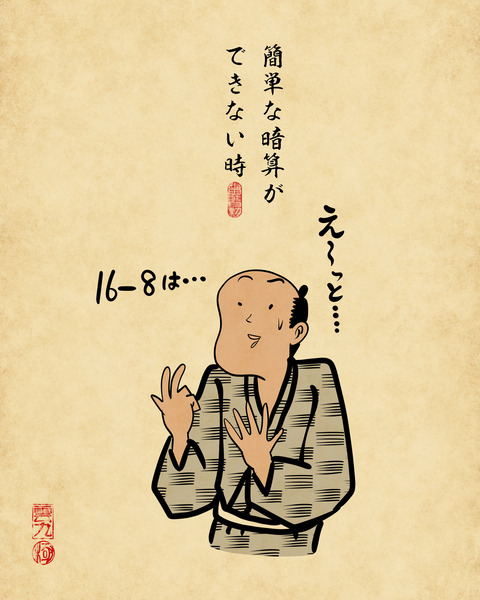 簡単な暗算が
できない時
え〜っと…‥
16－8は…